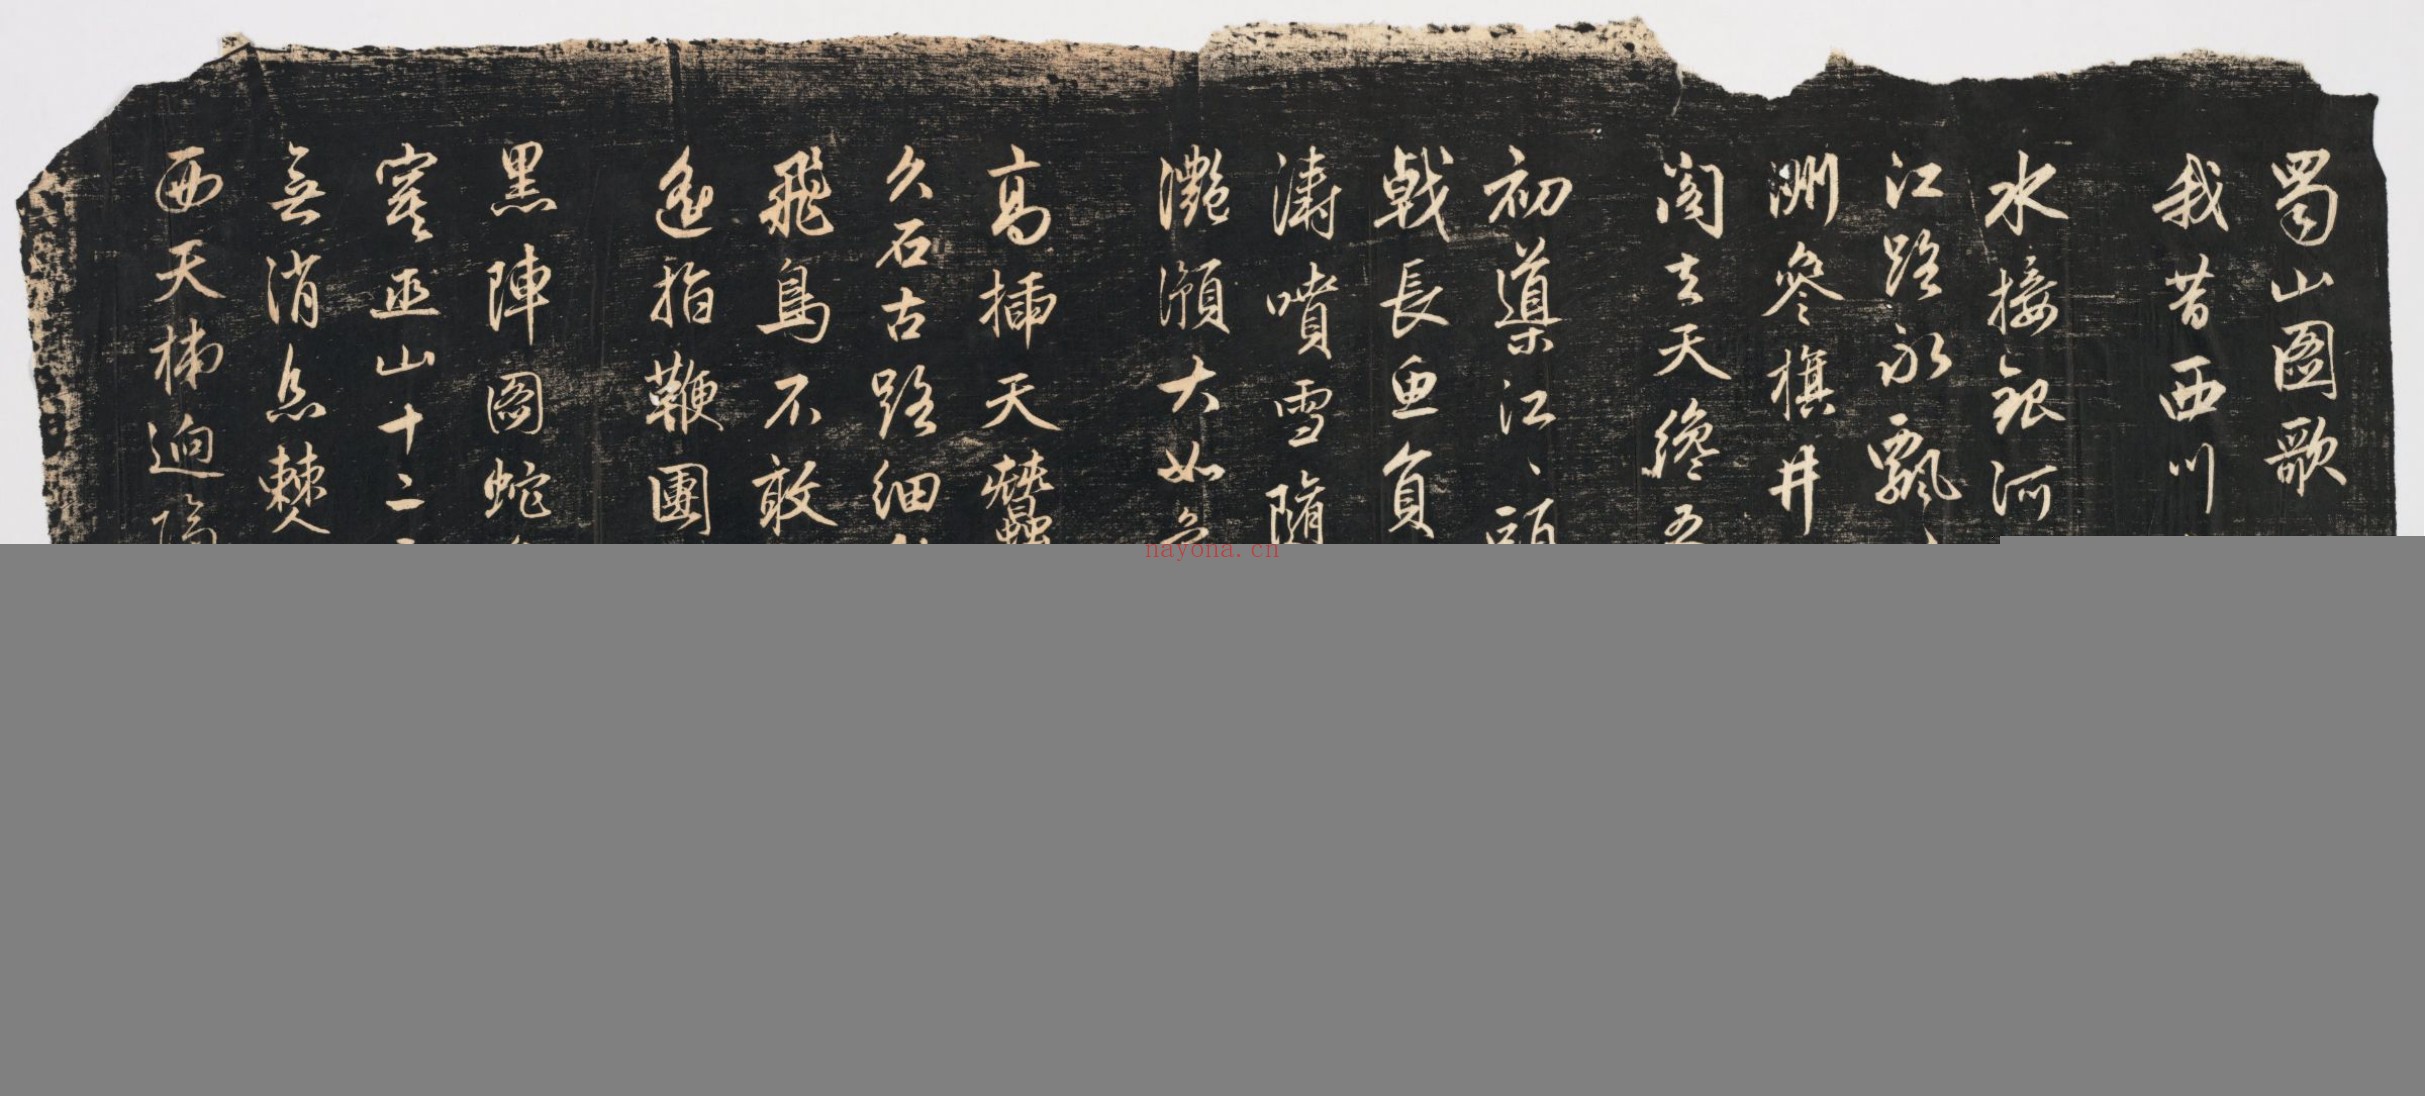 蜀山圖歌
我昔西川
水接銀河
江路永飄
淵參旗井
閣去天纔五
初導江江頭
戟長魚負
濤噴雪隋
灩澦大如
高插天蠶
久石古路細
飛鳥不敢
遙指鞭團
黑陣圖蛇
寒巫山十二
無消息棘人
西天梯迥隔
nayona.cn